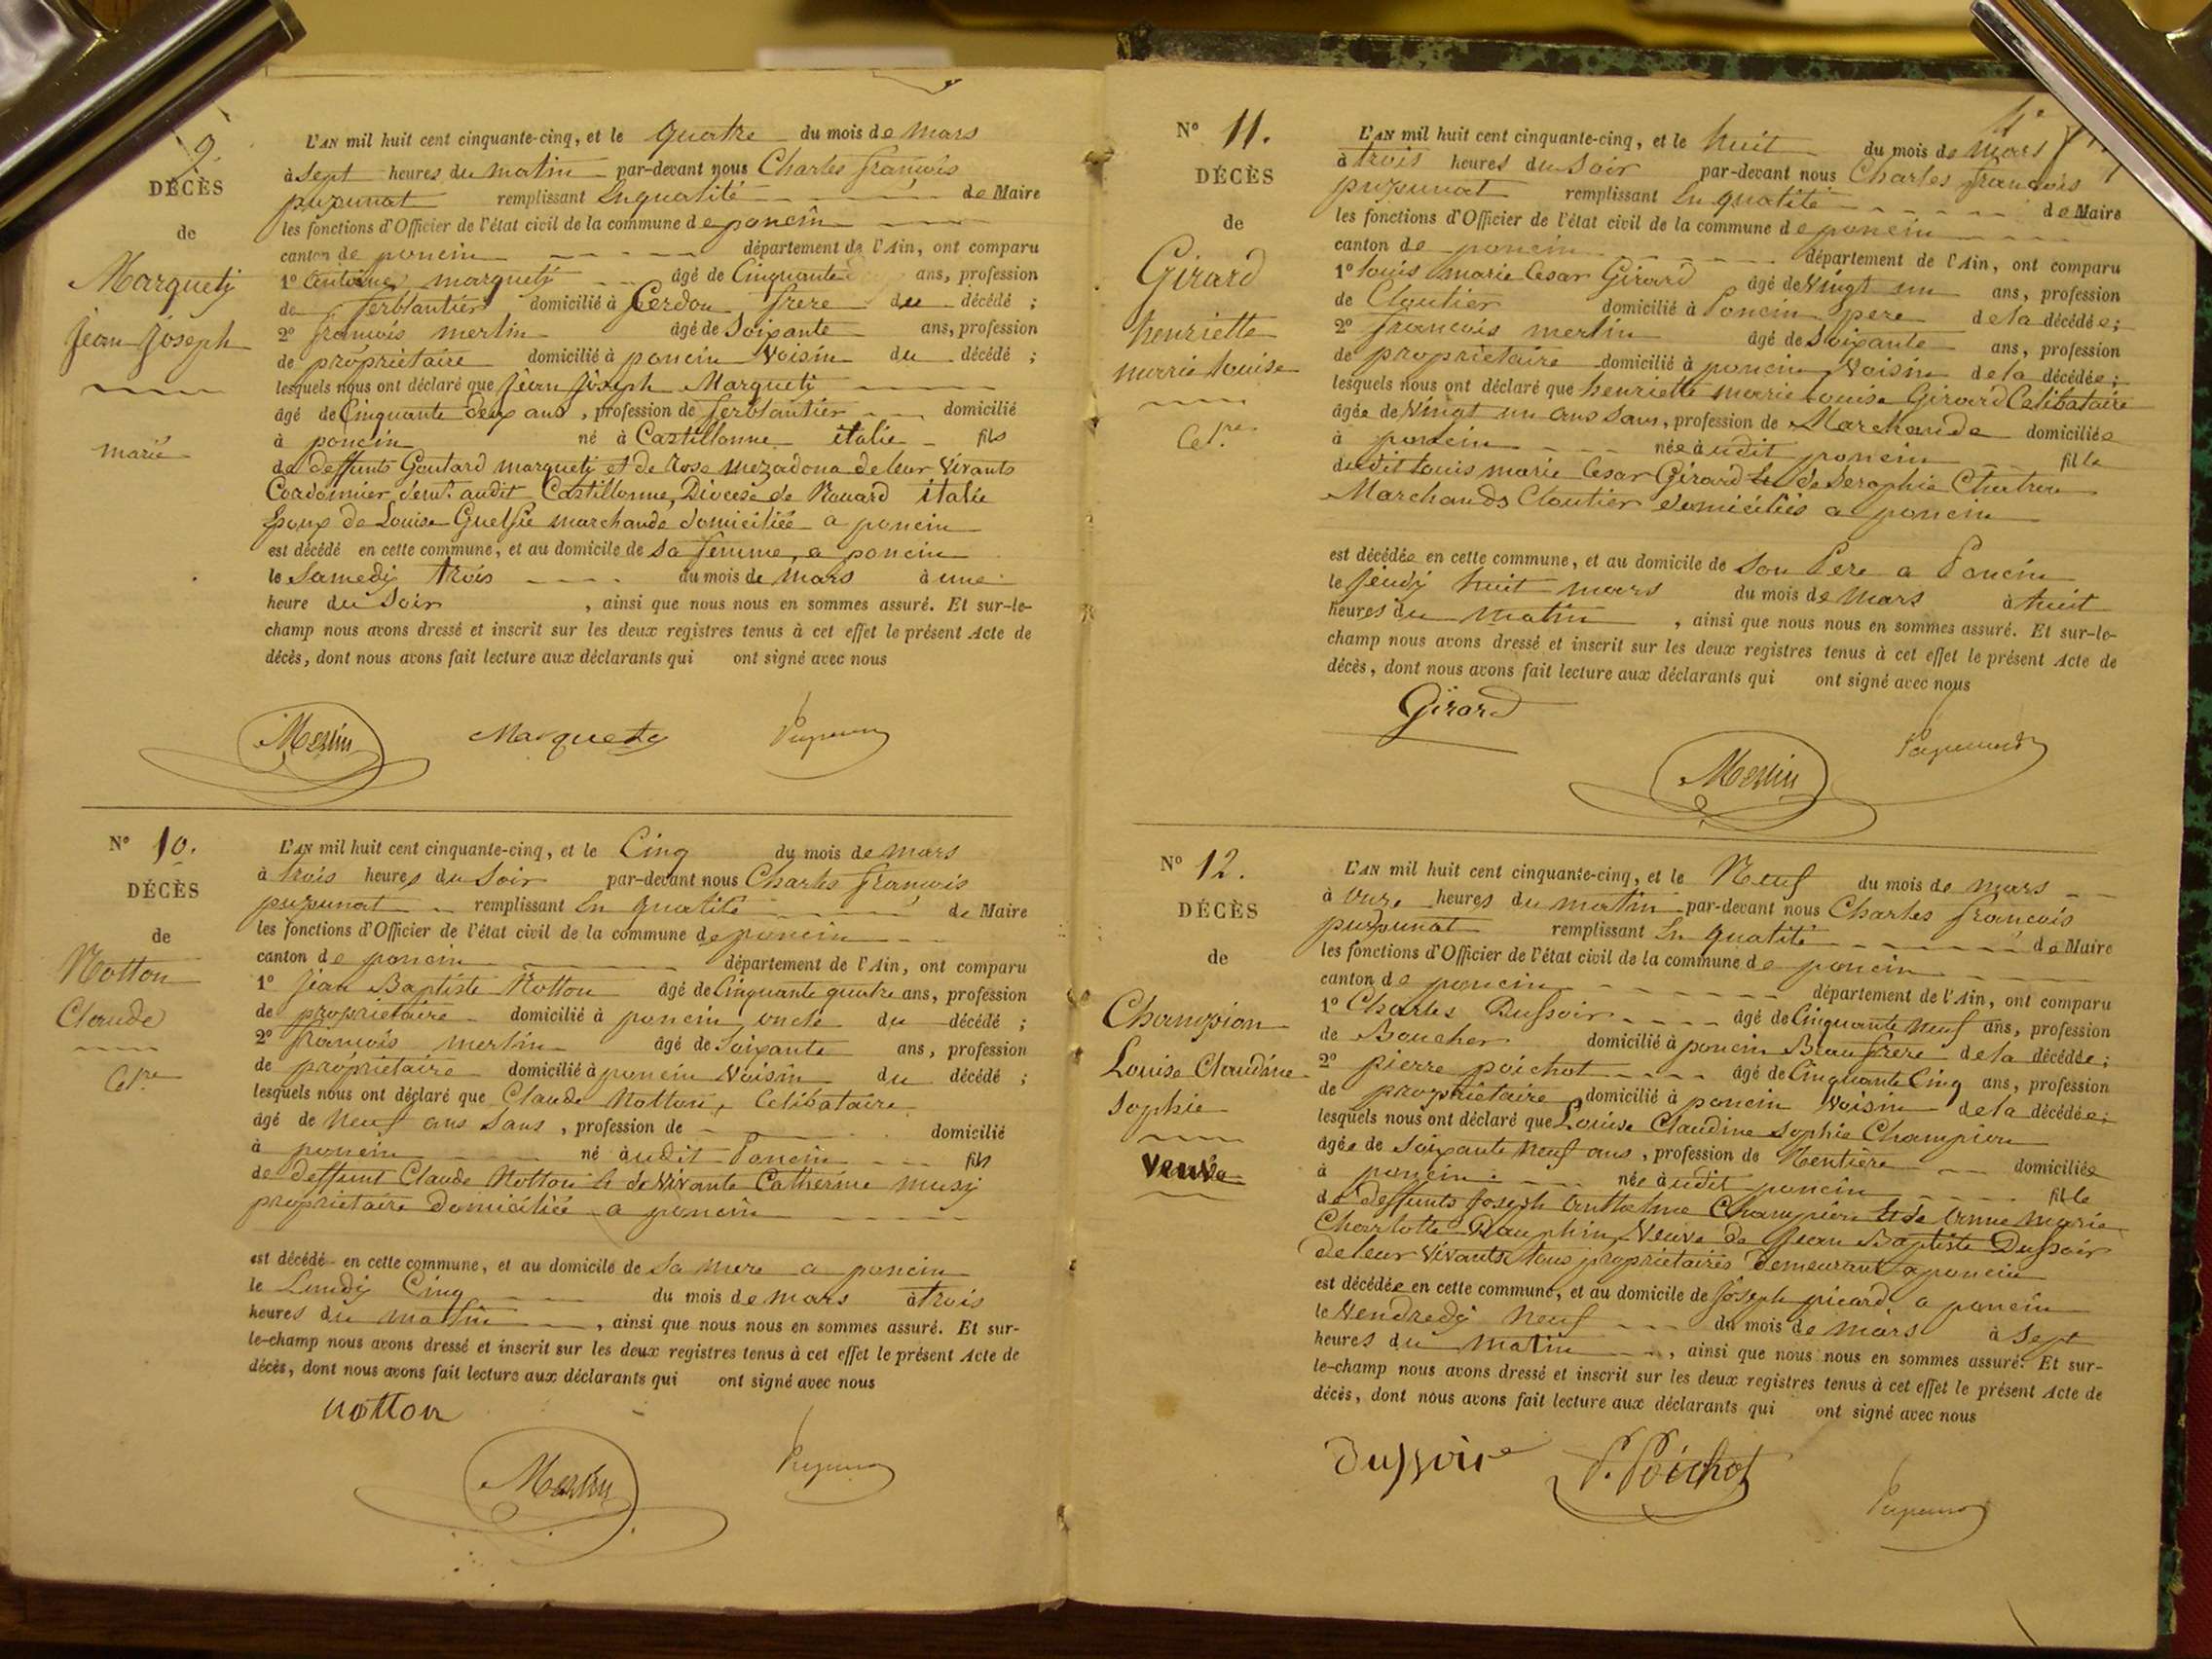 9.
DÉCÈS
de
Marquety
Jean Joseph
marié
L'AN mil huit cent cinquante-cinq, et le quatre du mois de mars
à sept heures du matin par-devant nous Charles françois
pupunat remplissant En qualité de Maire
les fonctions d'Officier de l'état civil de la commune de poncin
canton de poncin département de l'Ain, ont comparu
1° Antoine marquety âgé de Cinquante ans, profession
de ferblantier domicilié à Cerdon frere du décédé ;
2° françois merlin âgé de Soixante ans, profession
de propriétaire domicilié à poncin Voisin du décédé ;
lesquels nous ont déclaré que Jean Joseph Marqueti
âgé de Cinquante deux ans, profession de ferblantier domicilié
à poncin né à Castillonne italie fils
de deffunts Goutard marquety et de rose mezadona de leur Vivants
Cordonnier audit Castillonne, Diocèse de Nouard italie
Epoux de Louise Guelfie marchande domiciliée a poncin
est décédé en cette commune, et au domicile de sa femme, a poncin
le Samedy trois du mois de Mars à une
heure du Soir, ainsi que nous nous en sommes assuré. Et sur-le-
champ nous avons dressé et inscrit sur les deux registres tenus à cet effet le présent Acte de
décès, dont nous avons fait lecture aux déclarants qui ont signé avec nous
Merlin Marquety Pupunat
N° 10.
DÉCÈS
de
Notton
Claude
Cel.re
L'AN mil huit cent cinquante-cinq, et le Cinq du mois de mars
à trois heures du Soir par-devant nous Charles françois
pupunat remplissant En qualité de Maire
les fonctions d'Officier de l'état civil de la commune de poncin
canton de poncin département de l'Ain, ont comparu
1° Jean Baptiste Notton âgé de Cinquante quatre ans, profession
de propriétaire domicilié à poncin, oncle du décédé ;
2° françois merlin âgé de Soixante ans, profession
de propriétaire domicilié à poncin Voisin du décédé ;
lesquels nous ont déclaré que Claude Notton, Celibataire
âgé de Neuf ans Sans, profession de domicilié
à poncin né àudit Poncin fils
de deffunt Claude Notton & de Vivante Catherine musy
propriétaire Domiciliée a poncin
est décédé en cette commune, et au domicile de sa mere a poncin
le Lundy Cinq du mois de mars à trois
heures du matin, ainsi que nous nous en sommes assuré. Et sur-
le-champ nous avons dressé et inscrit sur les deux registres tenus à cet effet le présent Acte de
décès, dont nous avons fait lecture aux déclarants qui ont signé avec nous
notton
Merlin Pupunat
N° 11.
DÉCÈS
de
Girard
henriette
marie Louise
Cel.re
L'AN mil huit cent cinquante-cinq, et le huit du mois de Mars
à trois heures du Soir par-devant nous Charles françois
pupunat remplissant En qualité de Maire
les fonctions d'Officier de l'état civil de la commune de poncin
canton de poncin département de l'Ain, ont comparu
1° Louis marie Cesar Girard âgé de Vingt un ans, profession
de Cloutier domicilié à Poncin pere de la décédée ;
2° françois merlin âgé de Soixante ans, profession
de propriétaire domicilié à poncin Voisin de la décédée ;
lesquels nous ont déclaré que henriette marie Louise Girard Celibataire
âgée de Vingt un ans Sans, profession de Marchande domiciliée
à poncin née àudit poncin fille
dudit Louis marie Cesar Girard & de Seraphie Chatron
Marchands Cloutier domiciliés a poncin
est décédée en cette commune, et au domicile de Son Pere a Poncin
le Jeudy huit mars du mois de Mars à huit
heures du Matin, ainsi que nous nous en sommes assuré. Et sur-le-
champ nous avons dressé et inscrit sur les deux registres tenus à cet effet le présent Acte de
décès, dont nous avons fait lecture aux déclarants qui ont signé avec nous
Girard
Merlin Pupunat
N° 12.
DÉCÈS
de
Champion
Louise Claudine
Sophie
Veuve
L'AN mil huit cent cinquante-cinq, et le Neuf du mois de mars
à onze heures du matin par-devant nous Charles françois
pupunat remplissant En qualité de Maire
les fonctions d'Officier de l'état civil de la commune de poncin
canton de poncin département de l'Ain, ont comparu
1° Charles Dussoir âgé de Cinquante Neuf ans, profession
de Boucher domicilié à poncin Beau frere de la décédée ;
2° pierre poichot âgé de Cinquante Cinq ans, profession
de propriétaire domicilié à poncin Voisin de la décédée ;
lesquels nous ont déclaré que Louise Claudine Sophie Champion
âgée de Soixante Neuf ans, profession de Rentière domiciliée
à poncin née àudit poncin fille
de deffunts Joseph Anthelme Champion & de Anne Marie
Charlotte Dauphin Veuve de Jean Baptiste Dussoir
de leur Vivants tous propriétaires demeurant a poncin
est décédée en cette commune, et au domicile de Joseph picard a poncin
le Vendredy Neuf du mois de mars à Sept
heures du matin, ainsi que nous nous en sommes assuré. Et sur-
le-champ nous avons dressé et inscrit sur les deux registres tenus à cet effet le présent Acte de
décès, dont nous avons fait lecture aux déclarants qui ont signé avec nous
Dussoir P. Poichot Pupunat